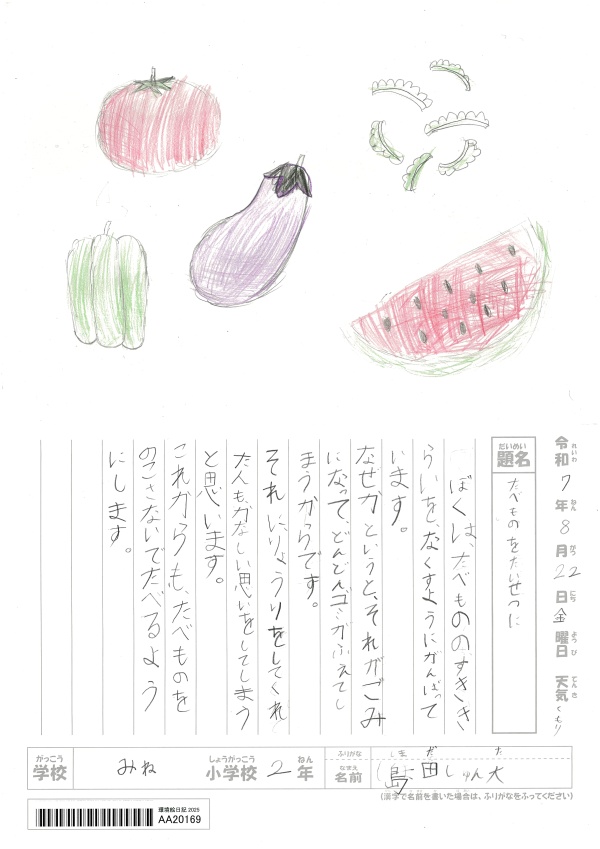 令和7年8月22日金曜日 天気くもり
れいわ ねん がつ にち ようび てんき
だいめい
題名
たべものをたいせつに
ぼくは、たべもののすききき
らいを、なくすようにがんばって
います。
なぜかというと、それがごみ
になって、どんどんゴミがふえてし
まうからです。
それに、りょうりをしてくれ
た人も、かなしい思いをしてしまう
と思います。
これからも、たべものを
のこさないでたべるよう
にします。
がっこう
学校
みね
しょうがっこう ねん
小学校 2年
ふりがな
しまだ た
なまえ
名前
島田しゅん大
(漢字で名前を書いた場合は、ふりがなをふってください)
環境絵日記 2025
AA20169